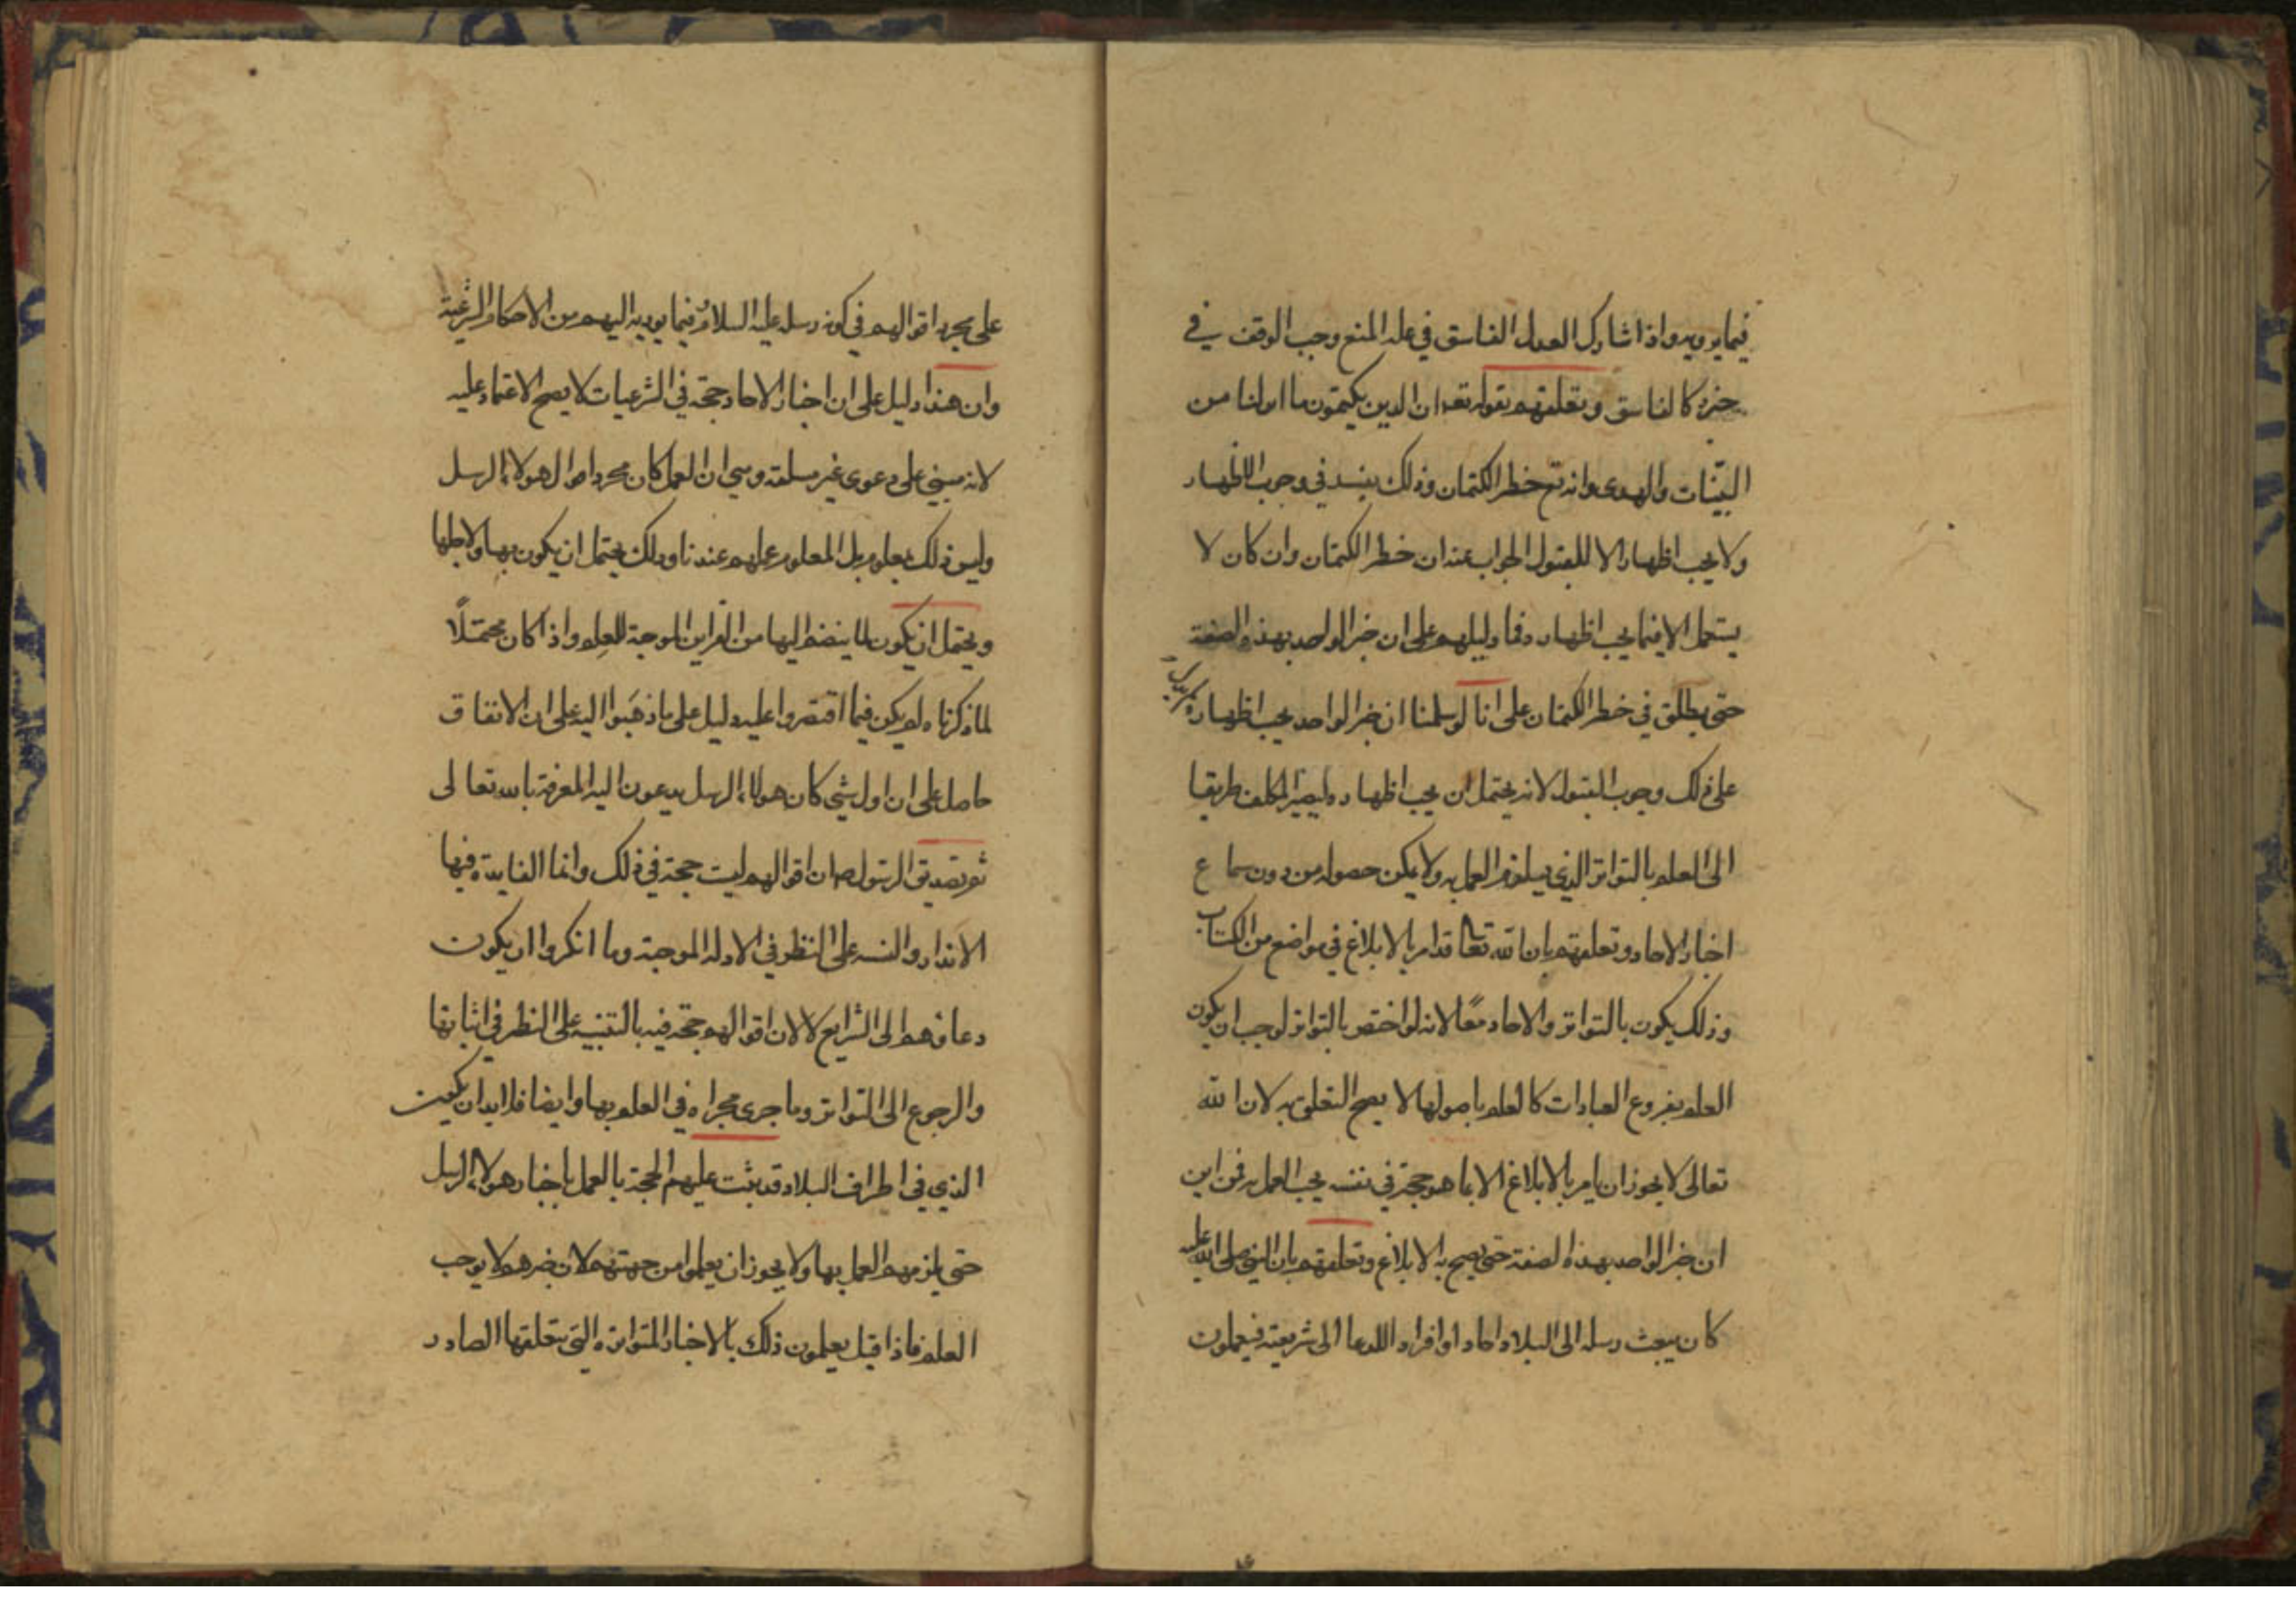 فيما يرويه واذا شارك العدل الفاسق في علة المنع وجب الوقف في
خبره كالفاسق وتعلقهم بقوله تعه ان الذين يكتمون ما انزلنا من
البيّنات والهدى وانه تع خطر الكتمان وذلك يفيد في وجوب الاظهار
ولا يجب اظهاره الا للقبول الجواب عنه ان خطر الكتمان وان كان لا
يستعمل الا فيما يجب اظهاره فما دليلهم على ان خبر الواحد بهذه الصفة
حتى يطلق في خطر الكتمان على انا لو سلمنا ان خبر الواحد يجب اظهاره
على ذلك وجوب القبول لانه يحتمل ان يجب اظهاره وليصير المكلف طريقا
الى العلم بالتواتر الذي يلزم العمل به ولا يمكن حصوله من دون سماع
اخبار الاحاد وتعلقهم بان الله تعا قد امر بالابلاغ في مواضع من الكتاب
وذلك يكون بالتواتر والاحاد معًا لانه لو اختص بالتواتر لوجب ان يكون
العلم بفروع العبادات كالعلم باصولها لا يصح التعلق به لان الله
تعالى لا يجوز ان يامر بالابلاغ الا بما هو حجة في نفسه يجب العمل به فمن اين
ان خبر الواحد بهذه الصفة حتى يصح به الابلاغ وتعلقهم بان النبي صلى الله عليه
كان يبعث رسله الى البلاد احادا وافرادا للدعا الى شريعته فيعملون
على مجرد اقوالهم في كونه رسله عليه السلام فيما يوديه اليهم من الاحكام الشرعية
وان هذا دليل على ان اخبار الاحاد حجة في الشرعيات لا يصح الاعتماد عليه
لانه مبني على دعوى غير مسلمة وهي ان العمل كان بمجرد اقوال هولاء الرسل
وليس ذلك بمعلوم بل المعلوم عملهم عندنا وذلك يحتمل ان يكون بها ولاجلها
ويحتمل ان يكون لما ينضم اليها من القراين الموجبة للعلم واذا كان محتملًا
لما ذكرناه لم يكن فيما اقتصروا عليه دليل على ما ذهبوا اليه على ان الاتفاق
حاصل على ان اول شي كان هولاء الرسل يدعون اليه المعرفة بالله تعالى
ثم تصديق الرسول صلع وان اقوالهم ليست حجة في ذلك وانما الفايدة فيها
الانذار والتنبيه على النظر في الادلة الموجبة وما انكروا ان يكون
دعاوهم الى الشرايع لا لان اقوالهم حجة فيه بل للتنبيه على النظر في اثباتها
والرجوع الى التواتر وما جرى مجراه في العلم بها وايضا فلا بد ان يكون
الذي في اطراف البلاد قد ثبتت عليهم الحجة بالعمل باخبار هولاء الرسل
حتى يلزمهم العمل بها ولا يجوز ان يعلموا من جهتهم لان خبرهم لا يوجب
العلم فاذا قيل يعلمون ذلك بالاخبار المتواترة التي يتعلقها الصادر